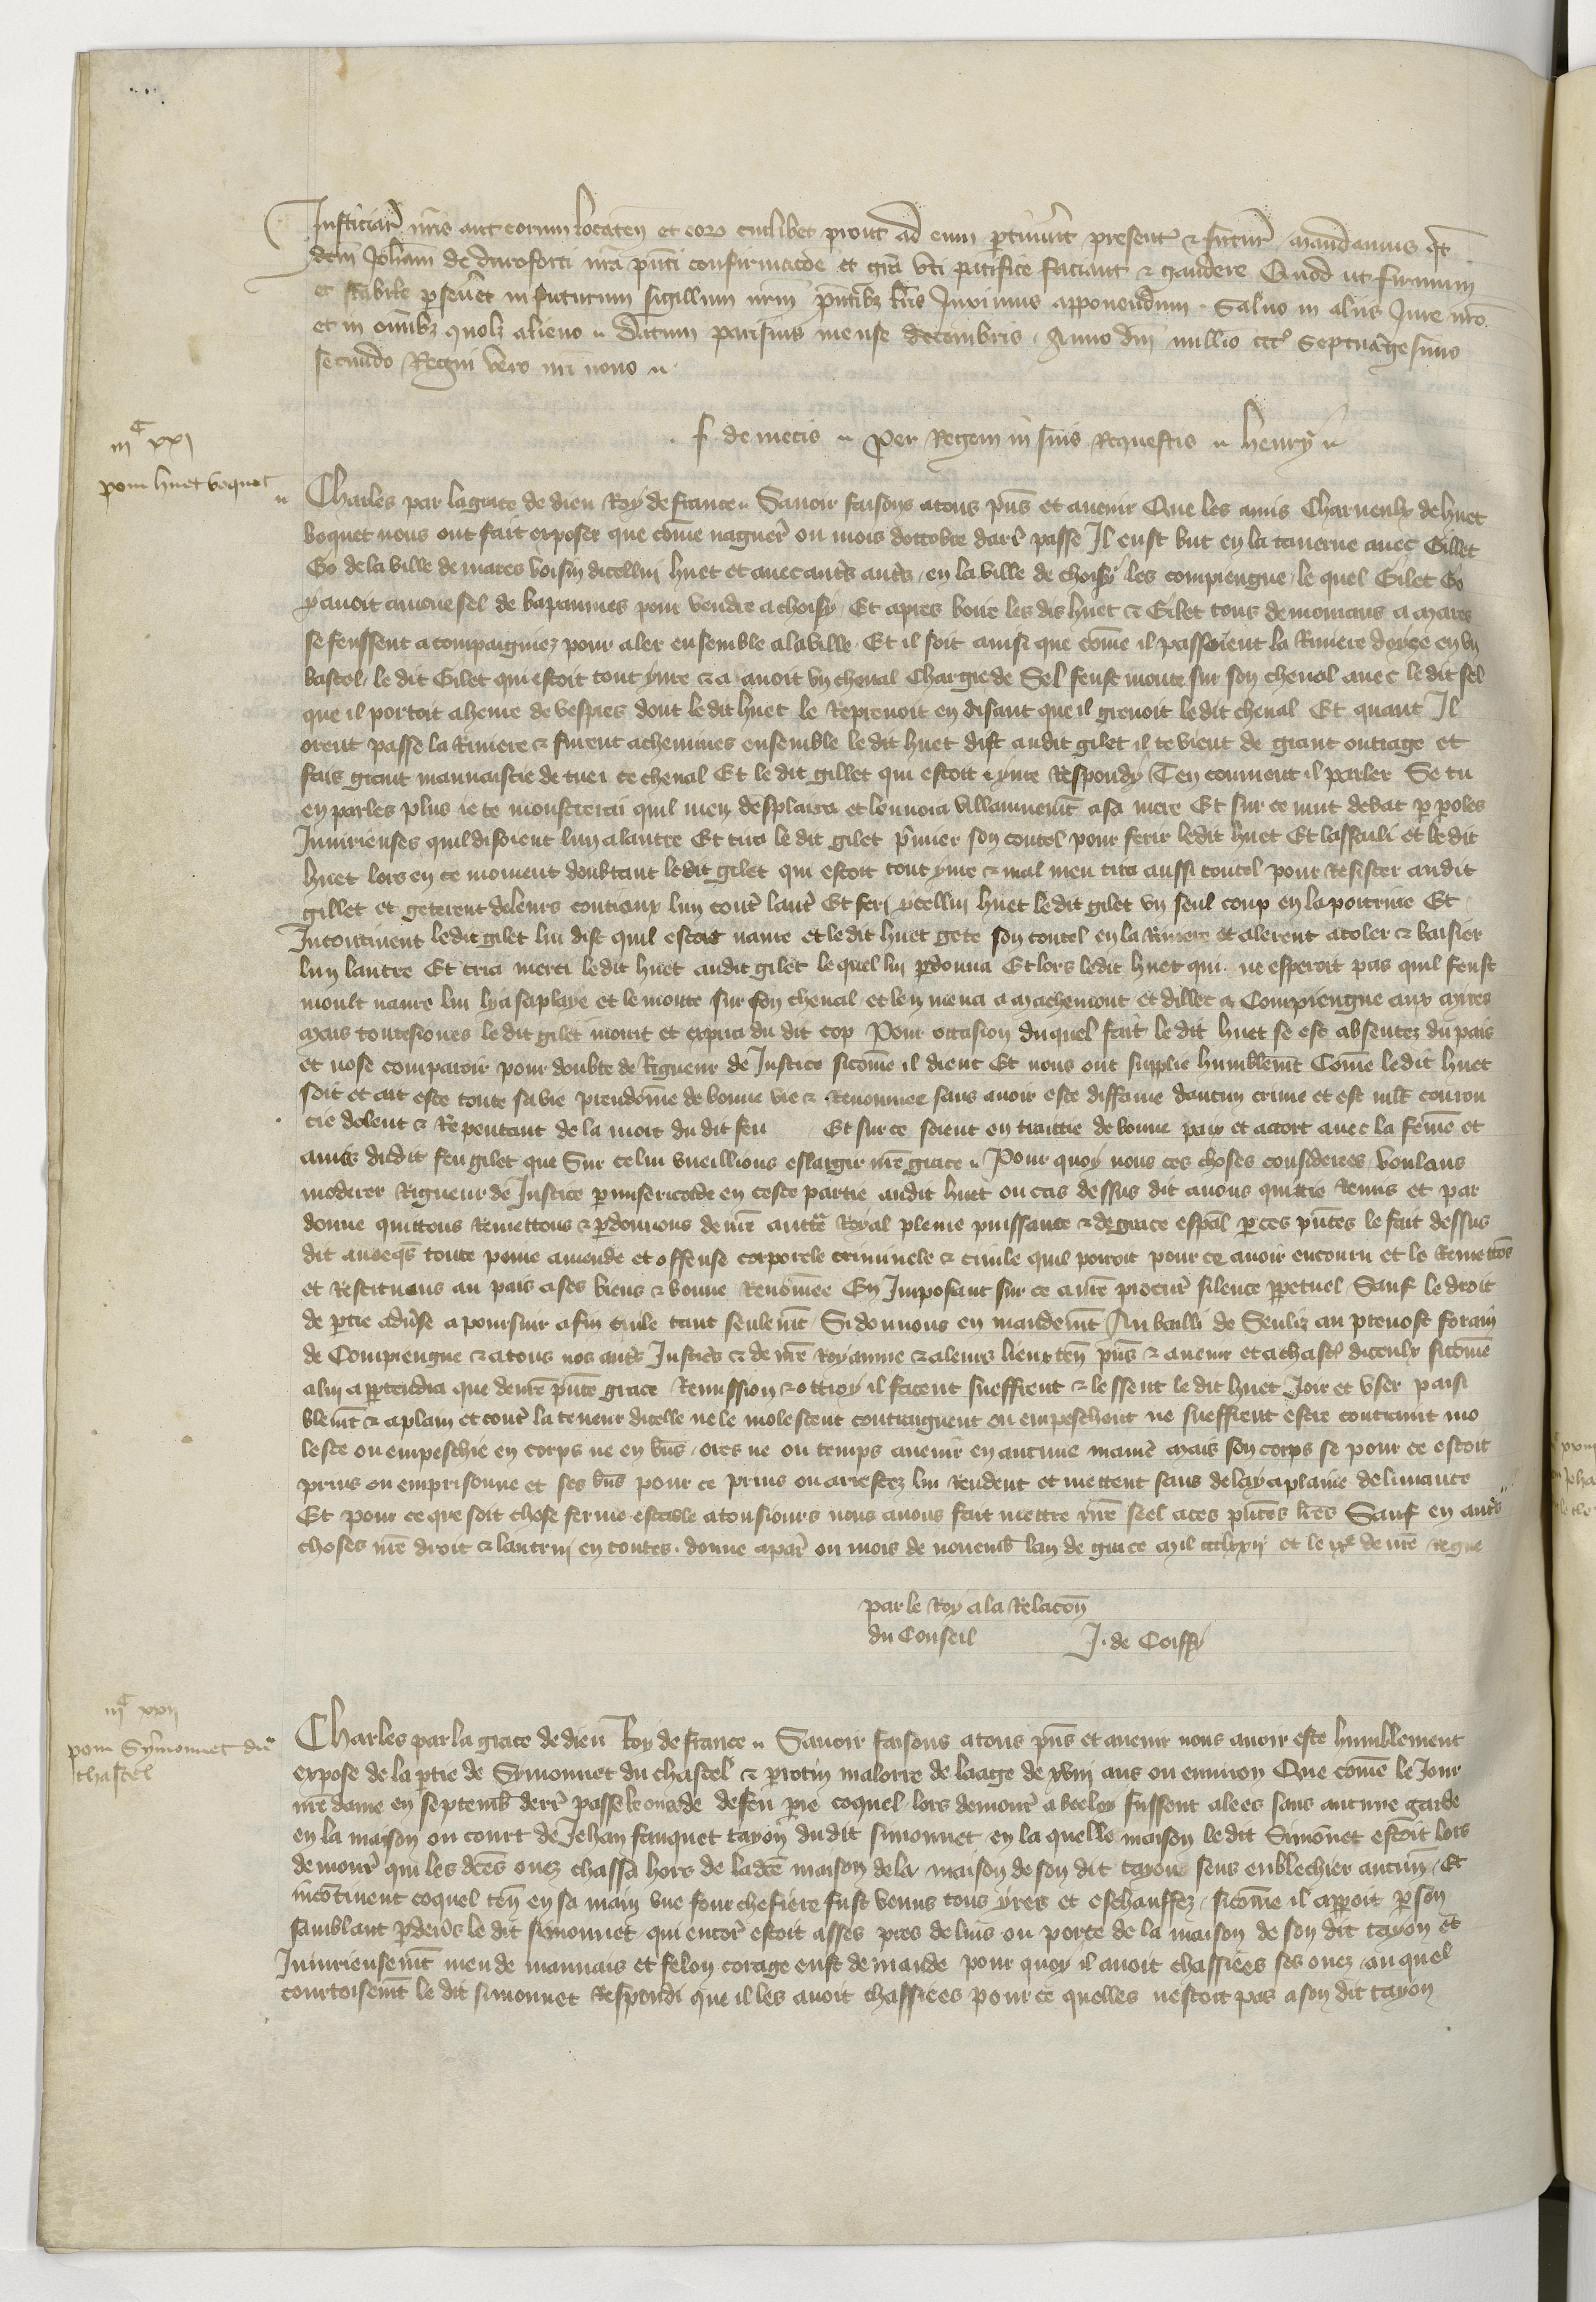 Justiciar nris aut eorum locaten et eorum cuilibet prout ad eum ptinuerit present & futur mandamus qt
dem Johem de duroforti nra pnti confirmacoe et gra uti pacifice faciant & gaudere Quod ut firmum
et stabile pseueret in futurum sigillum nrm pntibz lris Jussimus apponendum Saluo in aliis Jure nro
et in omibz quolz alieno Datum parisius mense decembris Anno dni millio ccc° septuagesimo
secundo Regni vero nri nono
f. de mecis Per Regem in suis Requestis henry
iij C xxj
pour huet boquet
Charles par la grace de dieu Roy de france Sauoir faisons atous pns et auenir Que les amis Charnoulx de huet
boquet nous ont fait exposer que come naguer ou mois doctobre darr passe Il eust but en la tauerne auec Gillet
Go de la ville de mares voisin dicellui huet et auec autrs autrs en la ville de choisy les compiengne le quel Gilet Go
y auoit amene sel de bapaumes pour vendre a choisy Et apres boire les dis huet & Gilet tous demourans a mares
se feussent acompaigniez pour aler ensemble a la ville Et il soit ainsi que come il passoient la Riuiere doyse en vn
bastel le dit Gilet qui estoit tout yure & a auoit vn cheual chargie de Sel feust monte sur son cheual auec le dit sel
que il portoit a heure de vespres dont le dit huet le Reprenoit en disant que il greuoit le dit cheual Et quant Il
orent passe la Riuiere & furent achemines ensemble le dit huet dist audit gilet il te vient de grant outrage et
fais grant mauuaistie de tuer ce cheual Et le dit gillet qui estoit yure Respondy Ten conuient il parler Se tu
en parles plus ie te monstrerai quil men desplaira et lenuoia villainnement a sa mere Et sur ce mut debat p poles
Iniurieuses quil disoient lun a lautre Et tira le dit gilet pmier son coutel pour ferir ledit huet Et lassailli et le dit
huet lors en ce moment doubtant le dit gilet qui estoit tout yure & mal meu tira aussi coutel pour Resister audit
gillet et geterent de leurs coutiaux lun contr lautr Et feri ycellui huet le dit gilet vn seul coup en la poitrine Et
Incontinent le dit gilet lui dist quil estoit naure et le dit huet geta son coutel en la Riuiere et alerent acoler & baisier
lun lautre Et cria merci le dit huet audit gilet le quel lui pdonna Et lors ledit huet qui ne esperoit pas quil feust
moult naure lui lya sa playe et le monta sur son cheual et len mena a machemont et dillec a Compiengne aux mires
Mais toutesuoies le dit gilet morut et expira du dit cop Pour occasion du quel fait le dit huet se est absentez du pais
et nose comparoir pour doubte de Rigueur de Justice sicome il dient Et nous ont supplie humblemt Come ledit huet
soit et ait este toute sa vie preudome de bonne vie & Renommee sans auoir este diffame daucun crime et est mlt courou
cie dolent & Repentant de la mort du dit feu Et sur ce soient en traittie de bonne paix et acort auec la feme et
amis dudit feu gilet que Sur celui vueillions eslargir nre grace Pour quoy nous ces choses considerees voulans
moderer Rigueur de Justice p misericorde en ceste partie audit huet ou cas dessus dit auons quittie Remis et par
donne quittons Remettons & pdonnons de nre auttte Royal pleine puissance & de grace espal p ces pntes le fait dessus
dit auecqs toute peine amende et offense corporele criminele & ciuile quil porroit pour ce auoir encouru et le Remettos
et Restituons au pais a ses biens & bonne Renomee En Imposant sur ce a nre procur silence ppetuel Sauf le droit
de ptie aduse a poursuir afin ciuile tant seulemt Si donnons en mandemt Au bailli de Senliz au preuost forain
de Compiengne & atous nos autrs Justicrs & de nre Royaume & a leurs lieux ten pns & auenir et a chascun diceulx sicome
a lui appartendra que de nre pnte grace Remission & ottroy il facent sueffrent & lessent le dit huet Joir et vser paisi
blemt & a plain et contr la teneur dicelle ne le molestent contraignent ou empeschent ne sueffrent estre contraint mo
leste ou empeschie en corps ne en biens ores ne ou temps auenir en aucune manie Mais son corps se pour ce estoit
prins ou emprisonne et ses bns pour ce prins ou arrestez lui Rendent et mettent sans delay a plaine deliurance
Et pour ce que soit chose ferme estable a tousiours nous auons fait mettre nre seel a ces pntes lres Sauf en autrs
choses nre droit & lautrui en toutes donne a par ou mois de nouemb lan de grace Mil ccclxxij et le ixe de nre Regne
par le Roy a la Relacon
du Conseil J. de Coiffy
iij C xxij
pour Symonnet du
chastel
Charles par la grace de dieu Roy de france Sauoir faisons atous pns et auenir nous auoir este humblement
expose de la ptie de Symonnet du chastel & protin malorre de laage de xviij ans ou enuiron Que come le Jour
nre dame en septemb derr passe les oues de de feu pre coquel lors demour a becloy fussent alees sans aucune garde
en la maison ou court de Jehan fauquet tayon du dit simonnet en la quelle maison le dit Simonnet estoit lors
demour qui les dces ouez chassa hors de ladce maison de la maison de son dit tayon sens enblechier aucune Et
incontinent coquel ten en sa main vne fourche fiere fust venus tous yres et eschauffez sicome il apparoit p son
samblant p deurs le dit simonnet qui encor estoit asses pres de luis ou porte de la maison de son dit tayon et
Iniurieusemt meu de mauuais et felon corage eust demande pour quoy il auoit chassiees ses ouez au quel
courtoisemt le dit simonnet Respondi que il les auoit chassiees pour ce quelles nestoit pas a son dit tayon